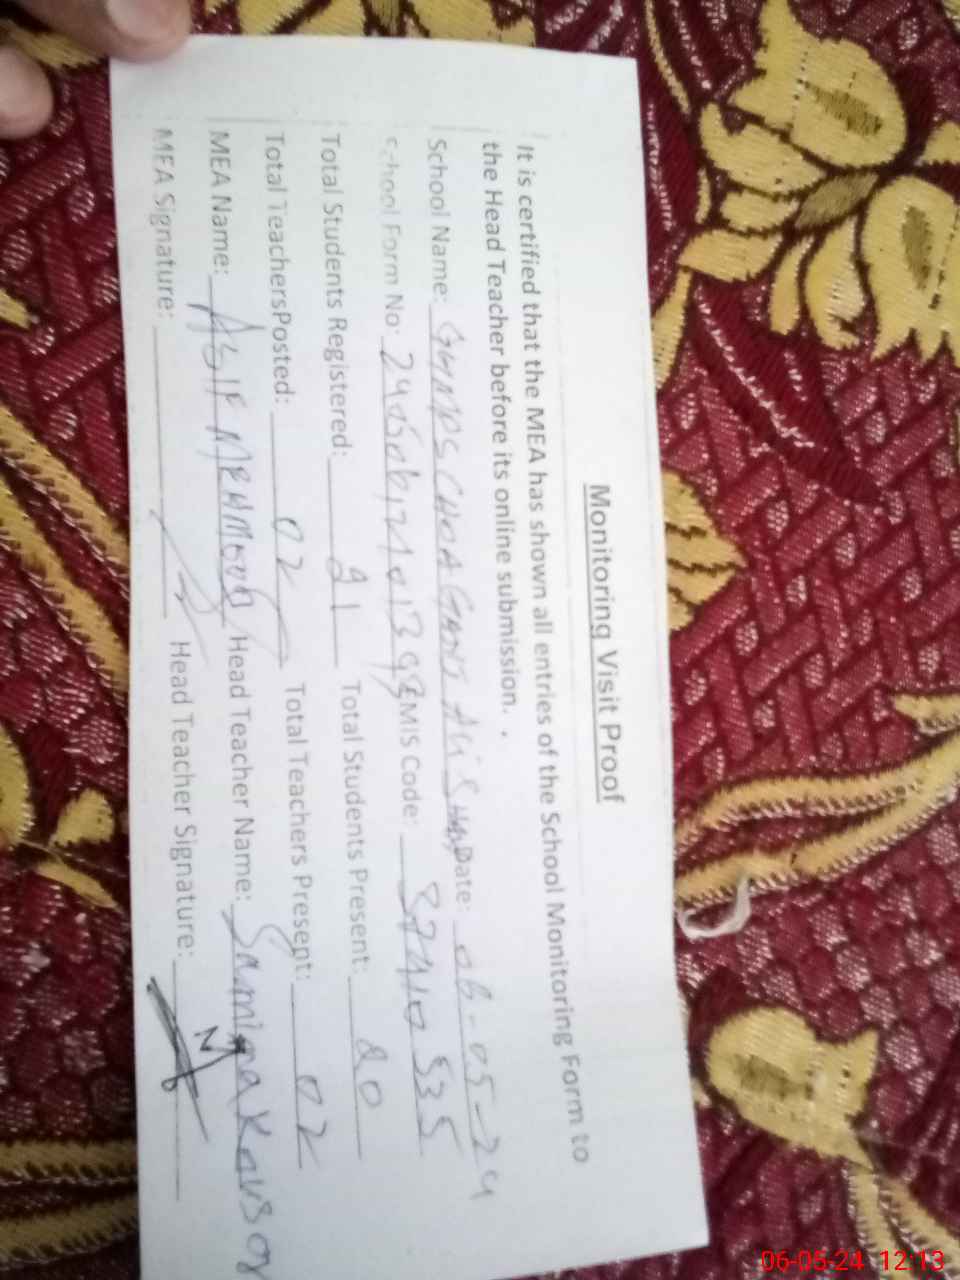 Monitoring Visit Proof
It is certified that the MEA has shown all entries of the School Monitoring Form to
the Head Teacher before its online submission. .
School Name: Date: 06-05-24
School Form No: EMIS Code:
Total Students Registered: 21 Total Students Present: 20
Total TeachersPosted: 02 Total Teachers Present: 02
MEA Name: ASIF MEHMOOD Head Teacher Name: Samina Kausar
MEA Signature: Head Teacher Signature:
06-05-24 12:13